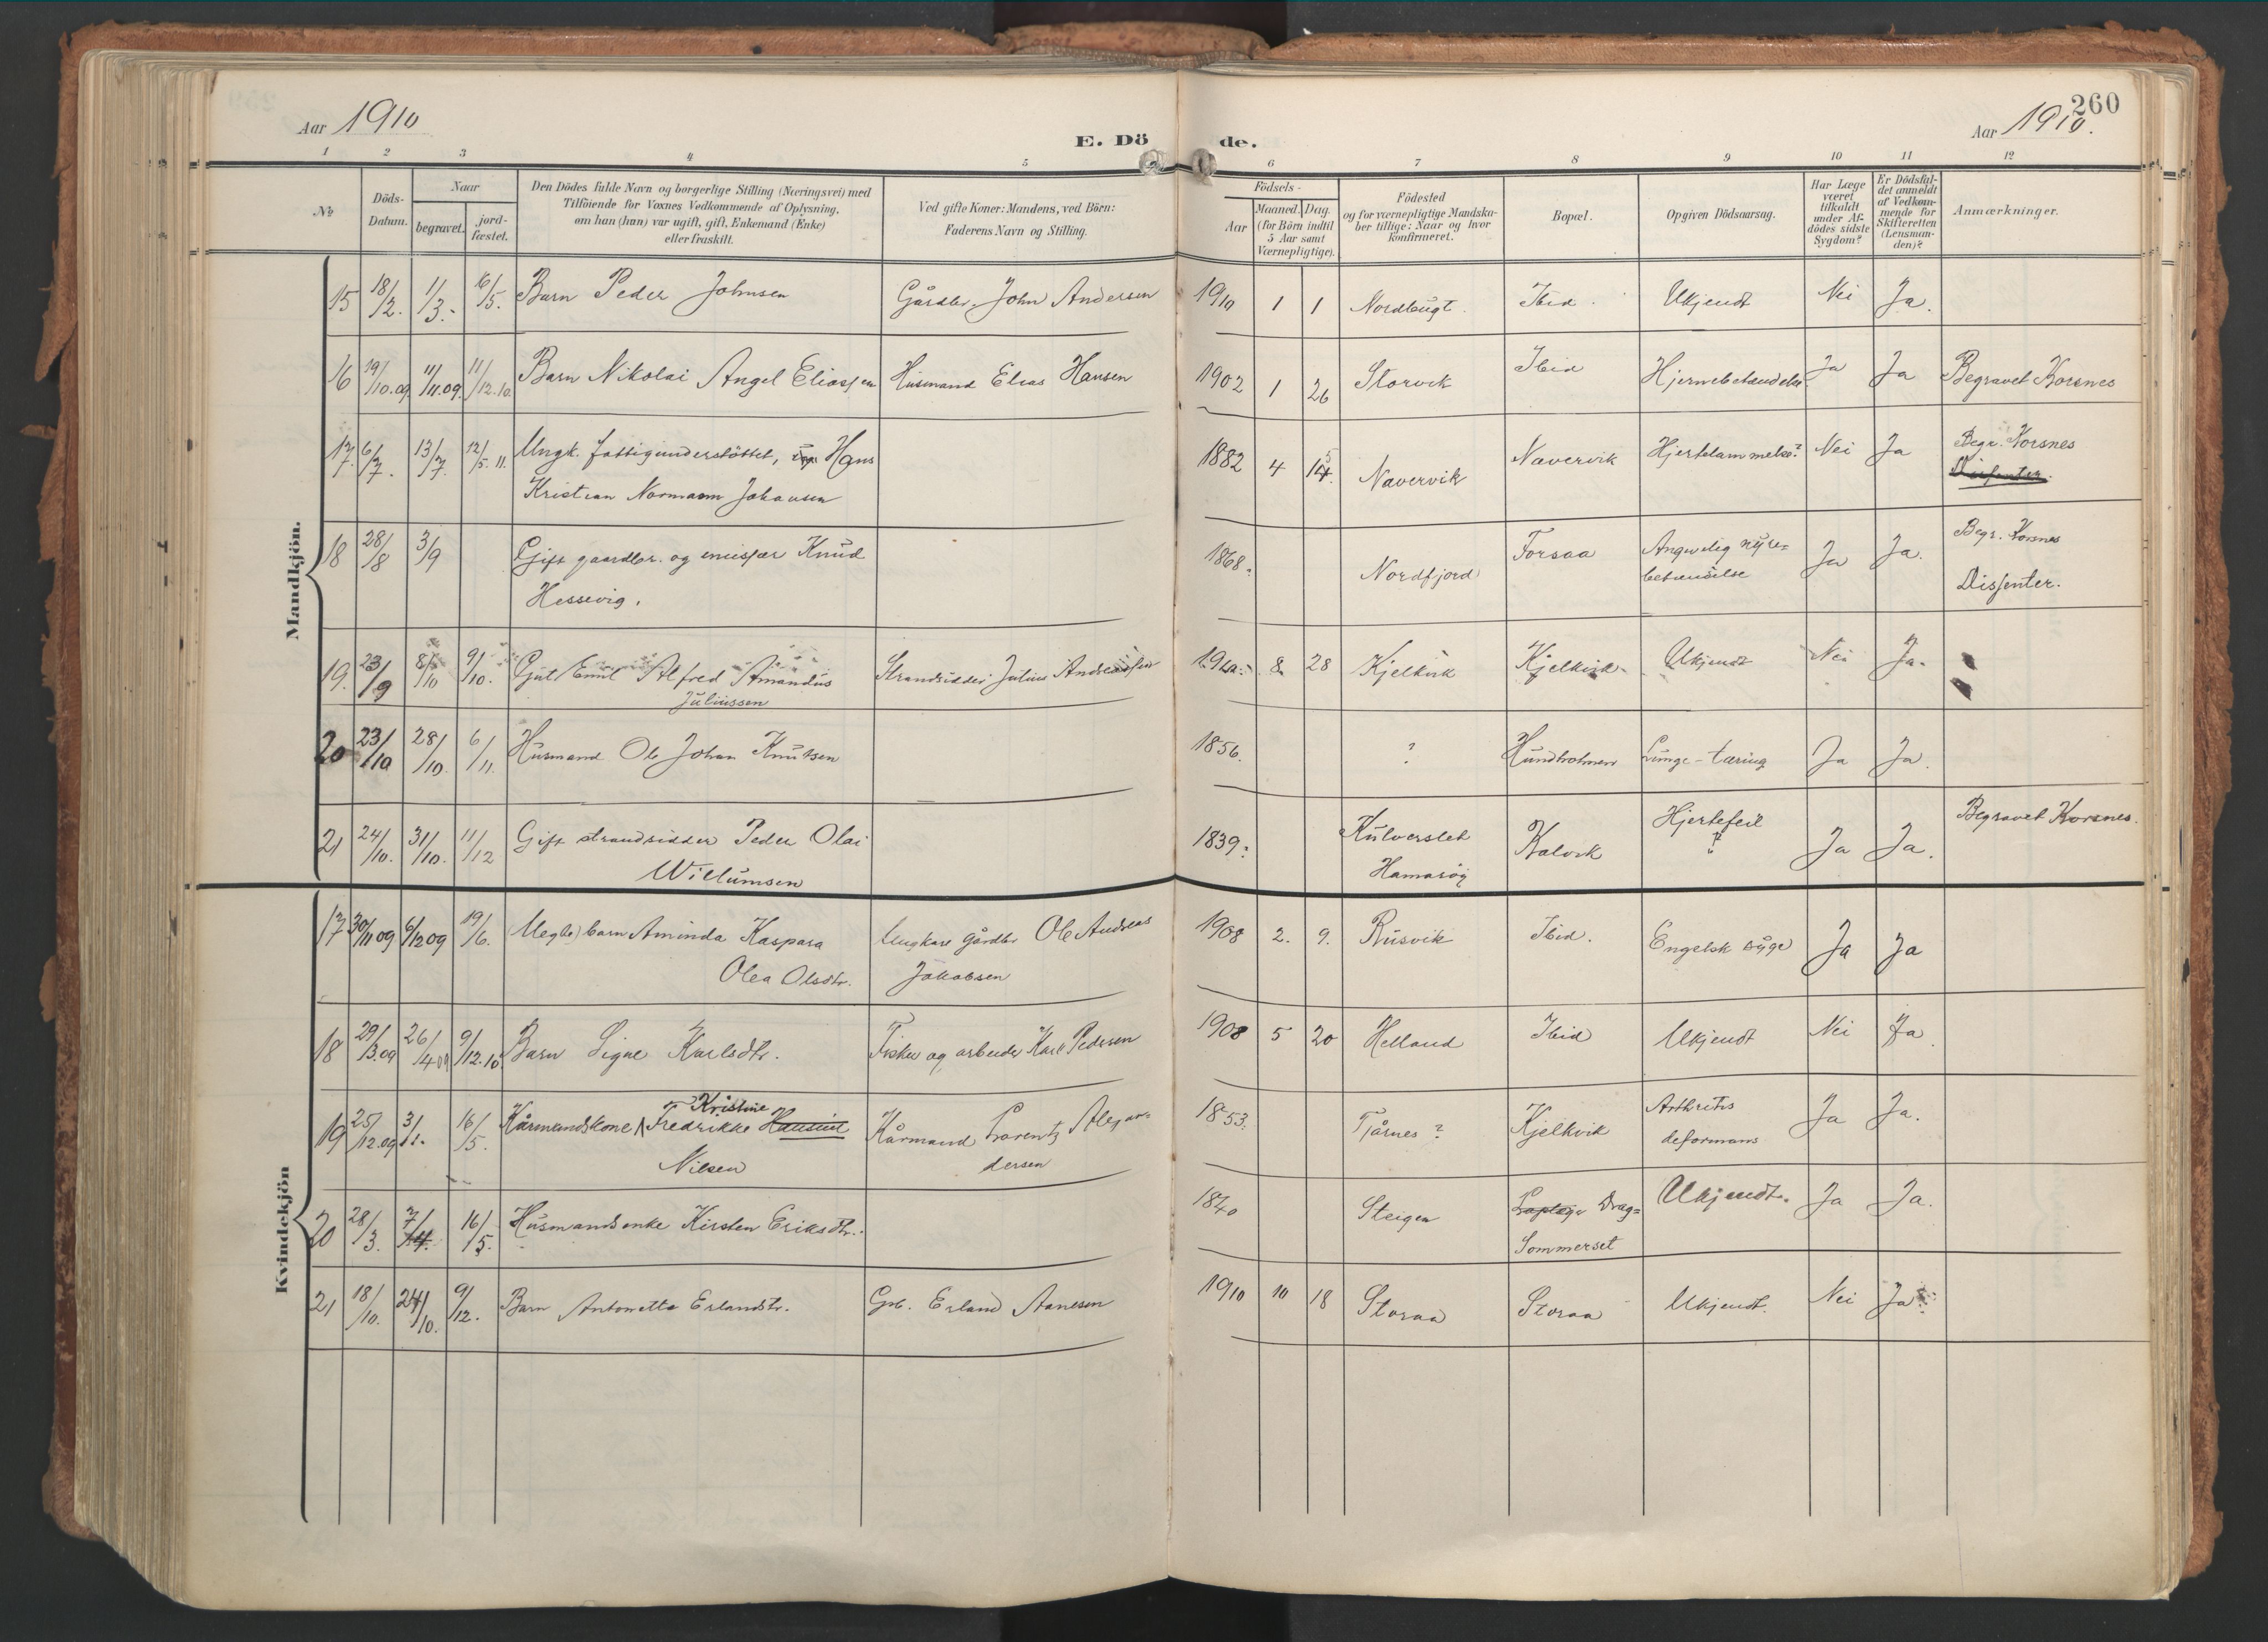 Aar 1910
E. Döde.
260
Aar 1910.
1 2 3 4 5 6 7 8 9 10 11 12
No
Döds-Datum.
Naar
begravet.
jord-fæstet.
Den Dödes fulde Navn og borgerlige Stilling (Næringsvei) med
Tilföiende for Voxnes Vedkommende af Oplysning,
om han (hun) var ugift, gift, Enkemand (Enke)
eller fraskilt.
Ved gifte Koner: Mandens, ved Börn:
Faderens Navn og Stilling.
Födsels-
Aar
Maaned. Dag.
(for Börn indtil
5 Aar samt
Værnepligtige).
Födested
og for værnepligtige Mandska-
ber tillige: Naar og hvor
konfirmeret.
Bopæl.
Opgiven Dödsaarsag.
Har Læge
været
tilkaldt
under Af-
dödes sidste
Sygdom?
Er Dödsfal-
det anmeldt
af Vedkom-
mende for
Skifteretten
(Lensman-
den)?
Anmærkninger.
Mandkjön.
15 18/2. 1/3. 16/5. Barn Peder Johnsen Gårdbr. John Andersen 1910 1 1 Nordbugt. Ibid. Ukjendt Nei Ja.
16 19/10.09 11/11.09. 11/12.10. Barn Nikolai Angel Eliassen Husmand Elias Hansen 1902 1 26 Storvik Ibid Hjernebetændelse Ja Ja Begravet Korsnes
17. 6/7. 13/7. 12/5.11. Ungk. fattigunderstöttet, Hans 1882 4 Navervik Navervik Hjertelammelse? Nei Ja Begr. Korsnes
Kristian Normann Johansen Dissenter.
18 28/8 3/9 Gift gaardbr. og emissær Knud 1868. Nordfjord Forsaa Angivelig nyre= Ja Ja. Begr. Korsnes
Hessevig. betændelse Dissenter.
19. 23/9 8/10 9/10. Emil Alfred Amandus Strandsidder Julius Andreassen 8 28 Kjelkvik Kjelkvik Ukjendt Nei Ja.
Juliussen
20 23/10 28/10. 6/11. Husmand Ole Johan Knutsen 1856. ? Hundholmen Lunge-tæring Ja Ja.
21 24/10. 31/10. 11/12 Gift strandsidder Peder Olai 1839. Kulverslet Kalvik Hjertefeil ? Ja Ja. Begravet Korsnes.
Willumsen Hamarøy
Kvindekjön
17 30/11 09 6/12 09 19/6. (Uegte) barn Aminda Kaspara Ungkarl gårdbr Ole Andreas 1908 2. 9. Rusvik Ibid. Engelsk syge Ja Ja
Olea Olsdtr. Jakobsen
18 29/3.09 26/4 09 9/12.10 Barn Signe Karlsdtr. Fisker og arbeider Karl Pedersen 1908 5 20 Helland Ibid Ukjendt Nei Ja
19 25/12.09 3/1. 16/5. Kårmandskone Fredrikke Kristine Hansine Kårmand Lorentz 1853. Tjårnes? Kjelkvik Arthritis Ja Ja.
Nilsen dersen deformans
20 28/3. 7/4. 16/5. Husmandsenke Kirsten Eriksdtr. 1840 Steigen Drag= Ukjendt. Ja Ja.
Sommerset
21 18/10. 24/10. 9/12. Barn Antonette Erlandstr. Grb. Erland Aanesen 1910 10 18 Storaa Storaa Ukjendt. Nei Ja